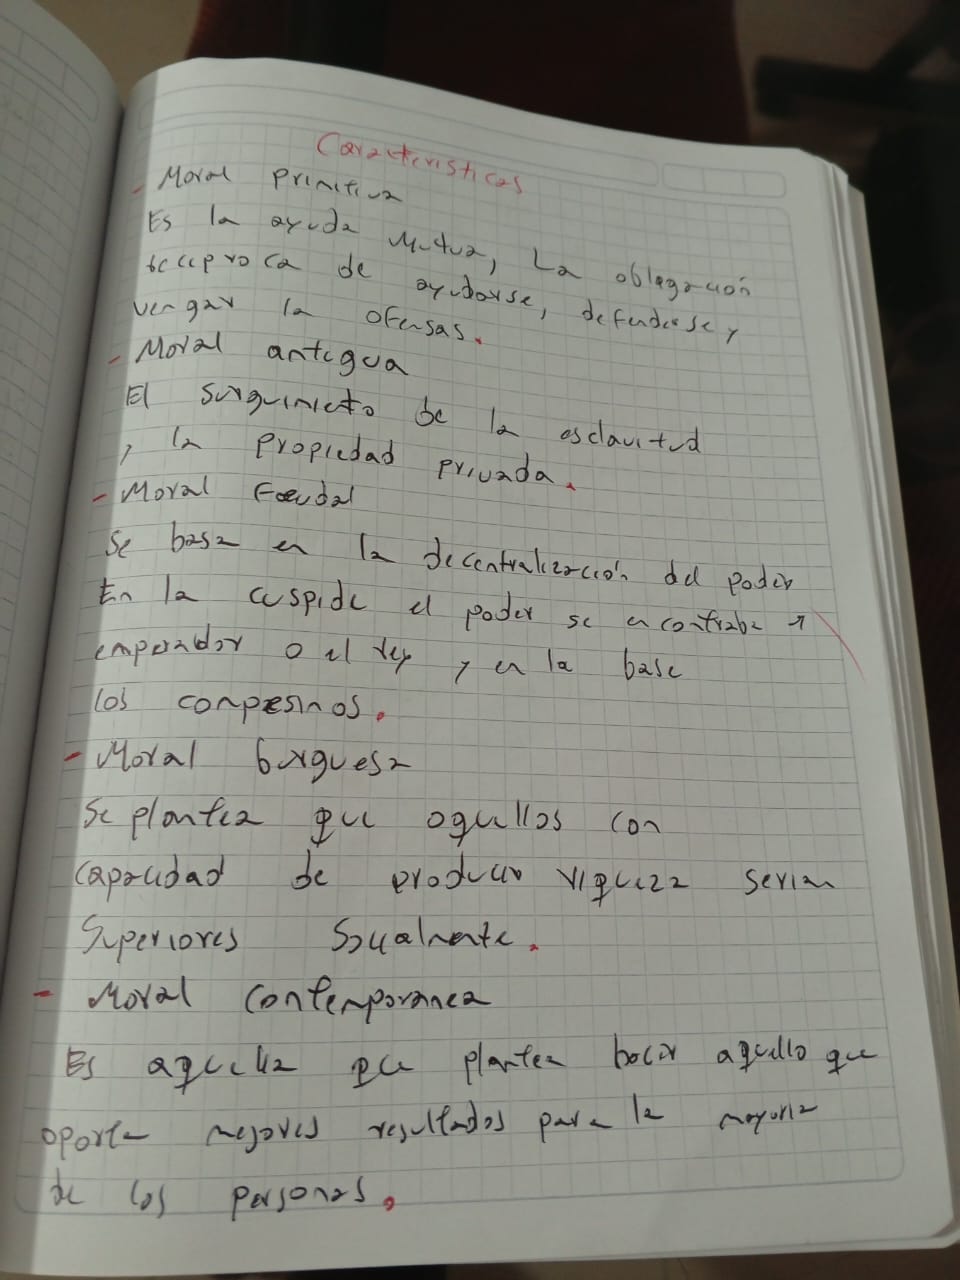 Caracteristicas
- Moral primitiva
Es la ayuda Mutua, La oblagación
reciproca de ayudarse, defenderse y
vengar la ofensas.
- Moral antigua
El surguimieto de la esclavitud
, la propiedad privada.
- Moral Feudal
Se basa en la decentralización del poder
En la cuspide el poder se encontraba
emperador o el rey y en la base
los compesinos.
- Moral burguesa
Se plantea que aquellos con
capacidad de producir riqueza serian
Superiores Socialmente.
- Moral Contemporanea
Es aquella que plantea hacer aquello que
aporte mejores resultados para la mayoria
de las personas.